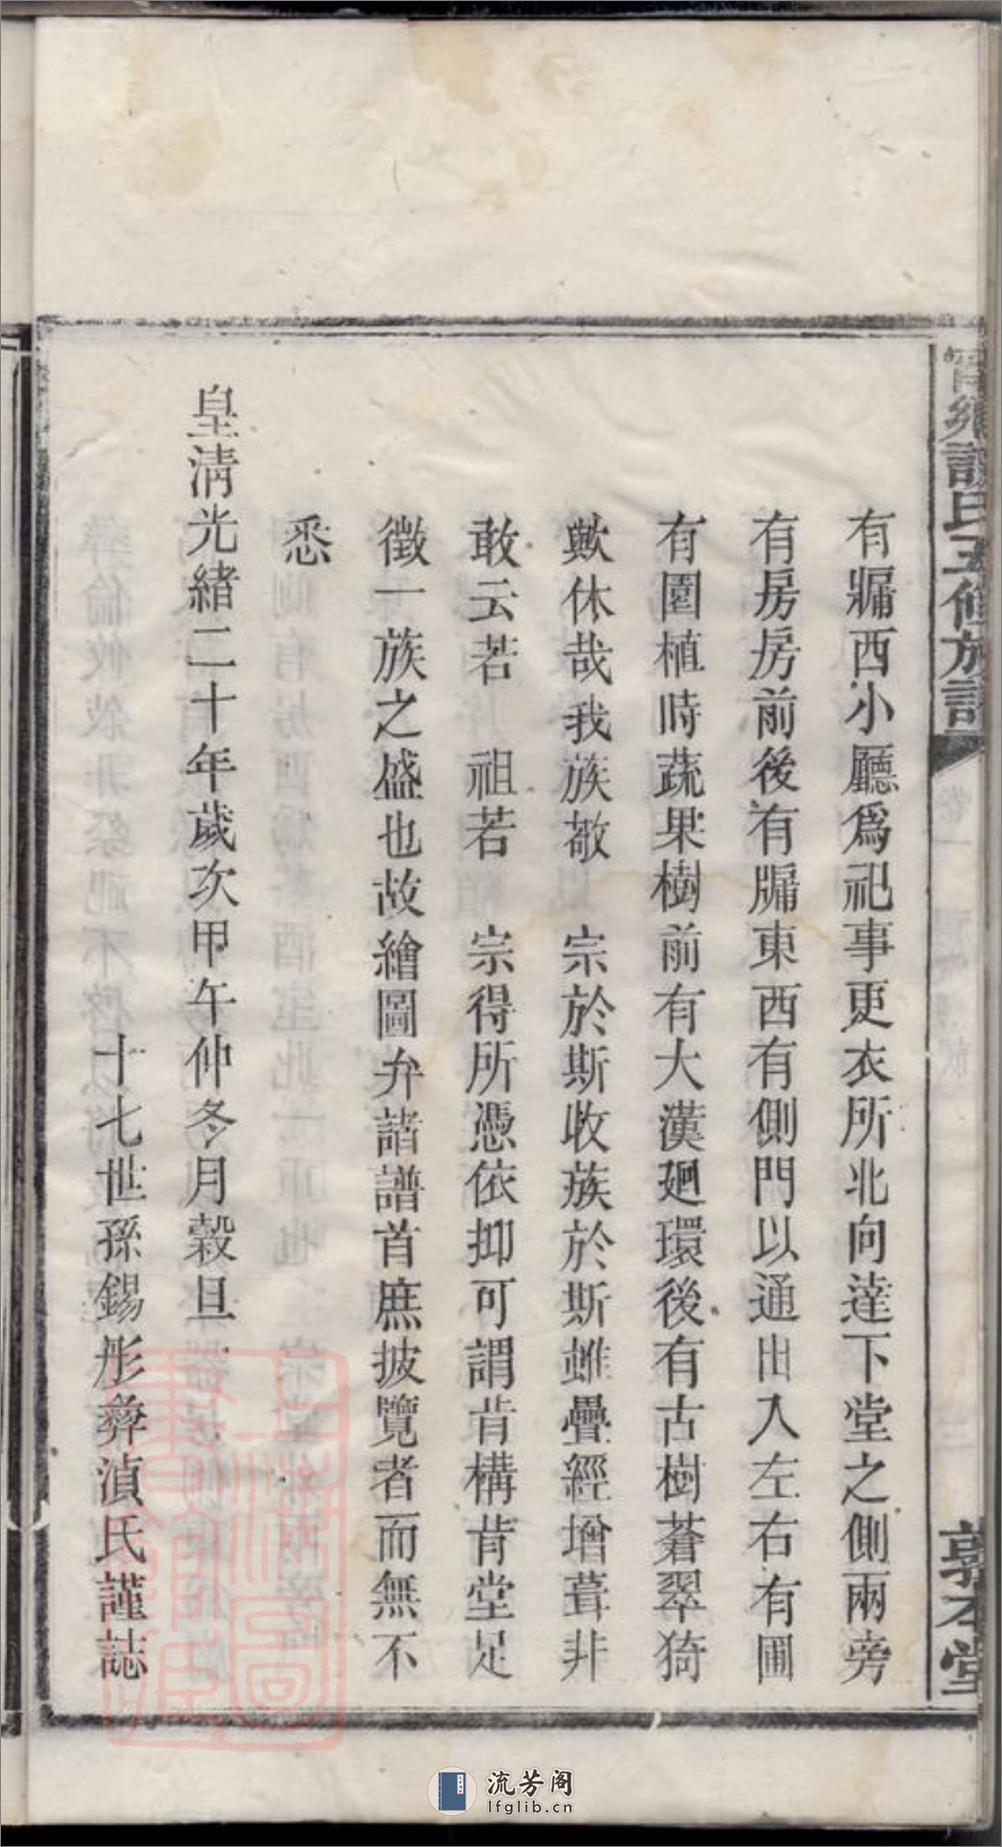 有牖西小廳爲祀事更衣所北向達下堂之側兩旁
有房房前後有牖東西有側門以通出入左右有圃
有園植時蔬果樹前有大漢廻環後有古樹蒼翠猗
歟休哉我族敬　宗於斯收族於斯雖疊經增葺非
敢云若　祖若　宗得所憑依抑可謂肯構肯堂足
徵一族之盛也故繪圖弁諸譜首庶披覽者而無不
悉
皇清光緒二十年歲次甲午仲冬月穀旦
十七世孫錫彤彝湞氏謹誌
氏五修族譜
敦本堂
流芳阁
lfglib.cn